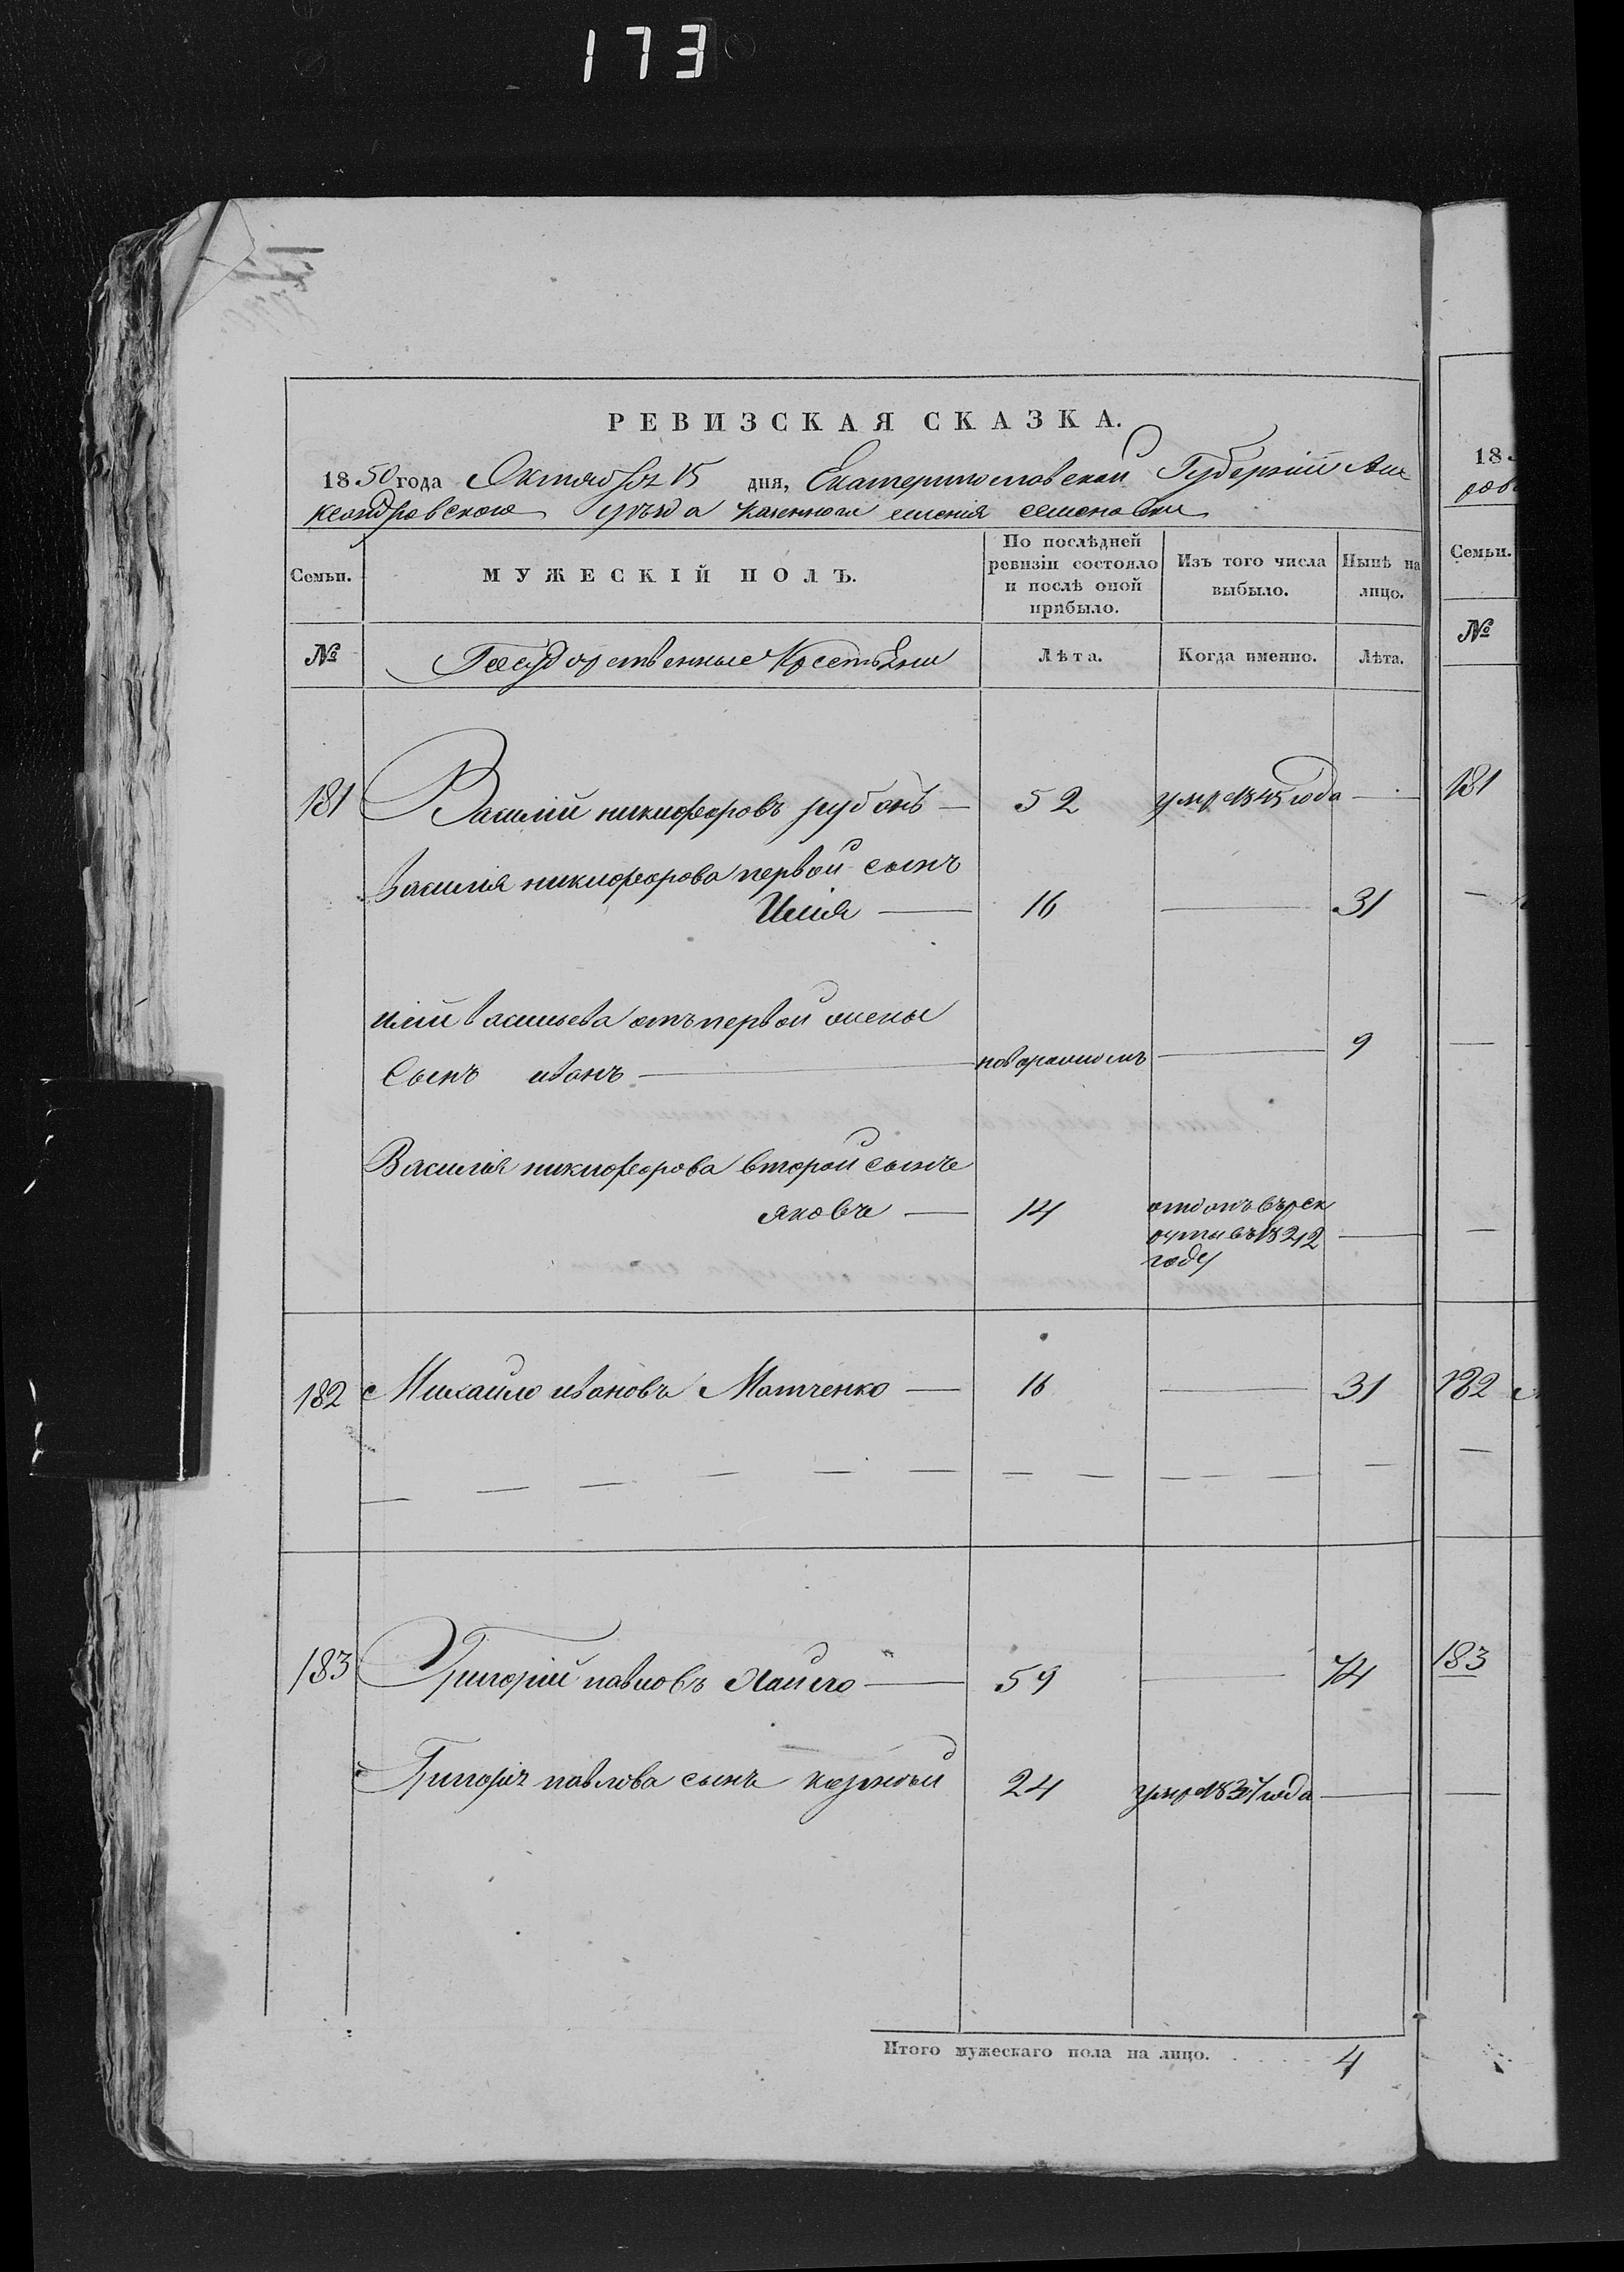 173
РЕВИЗСКАЯ СКАЗКА.
1850 года Октября 15 дня, Екатеринославской Губерніи Але
ксандровского уезда казенного селенія семеновки
Семьи. МУЖЕСКІЙ ПОЛЪ. По послѣдней ревизіи состояло и послѣ оной прибыло. Изъ того числа выбыло. Нынѣ на лицо.
№ Государственные Крестьяни Лѣта. Когда именно. Лѣта.
181 Василій никифоровъ рубанъ — 52 умр 1845 года —
Василія никифорова первой сынъ
Илія — 16 — 31
иліи васильева отъ первой жены
Сынъ иванъ — новорожден — 9
Василія никифорова второй сынъ
яковъ — 14 отданъ въ рек
руты въ 1842
году —
182 Михайло ивановъ Матченко — 16 — 31
183 Григорій павловъ — 59 — 74
Григорія павлова сынъ 24 умр 1837 года —
Итого мужескаго пола на лицо. 4
18
Семьи.
№
181
182
183